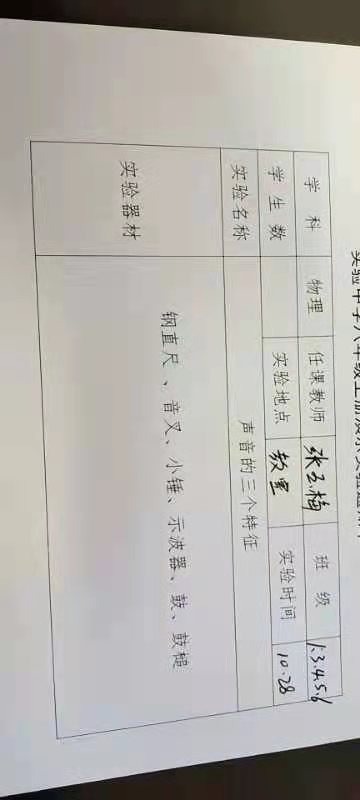 实验中学八年级上册演示实验通知单
学科 物理 任课教师 张玉梅 班级 1.3.4.5.6
学生数 实验地点 教室 实验时间 10.28
实验名称 声音的三个特征
实验器材 钢直尺、音叉、小锤、示波器、鼓、鼓槌